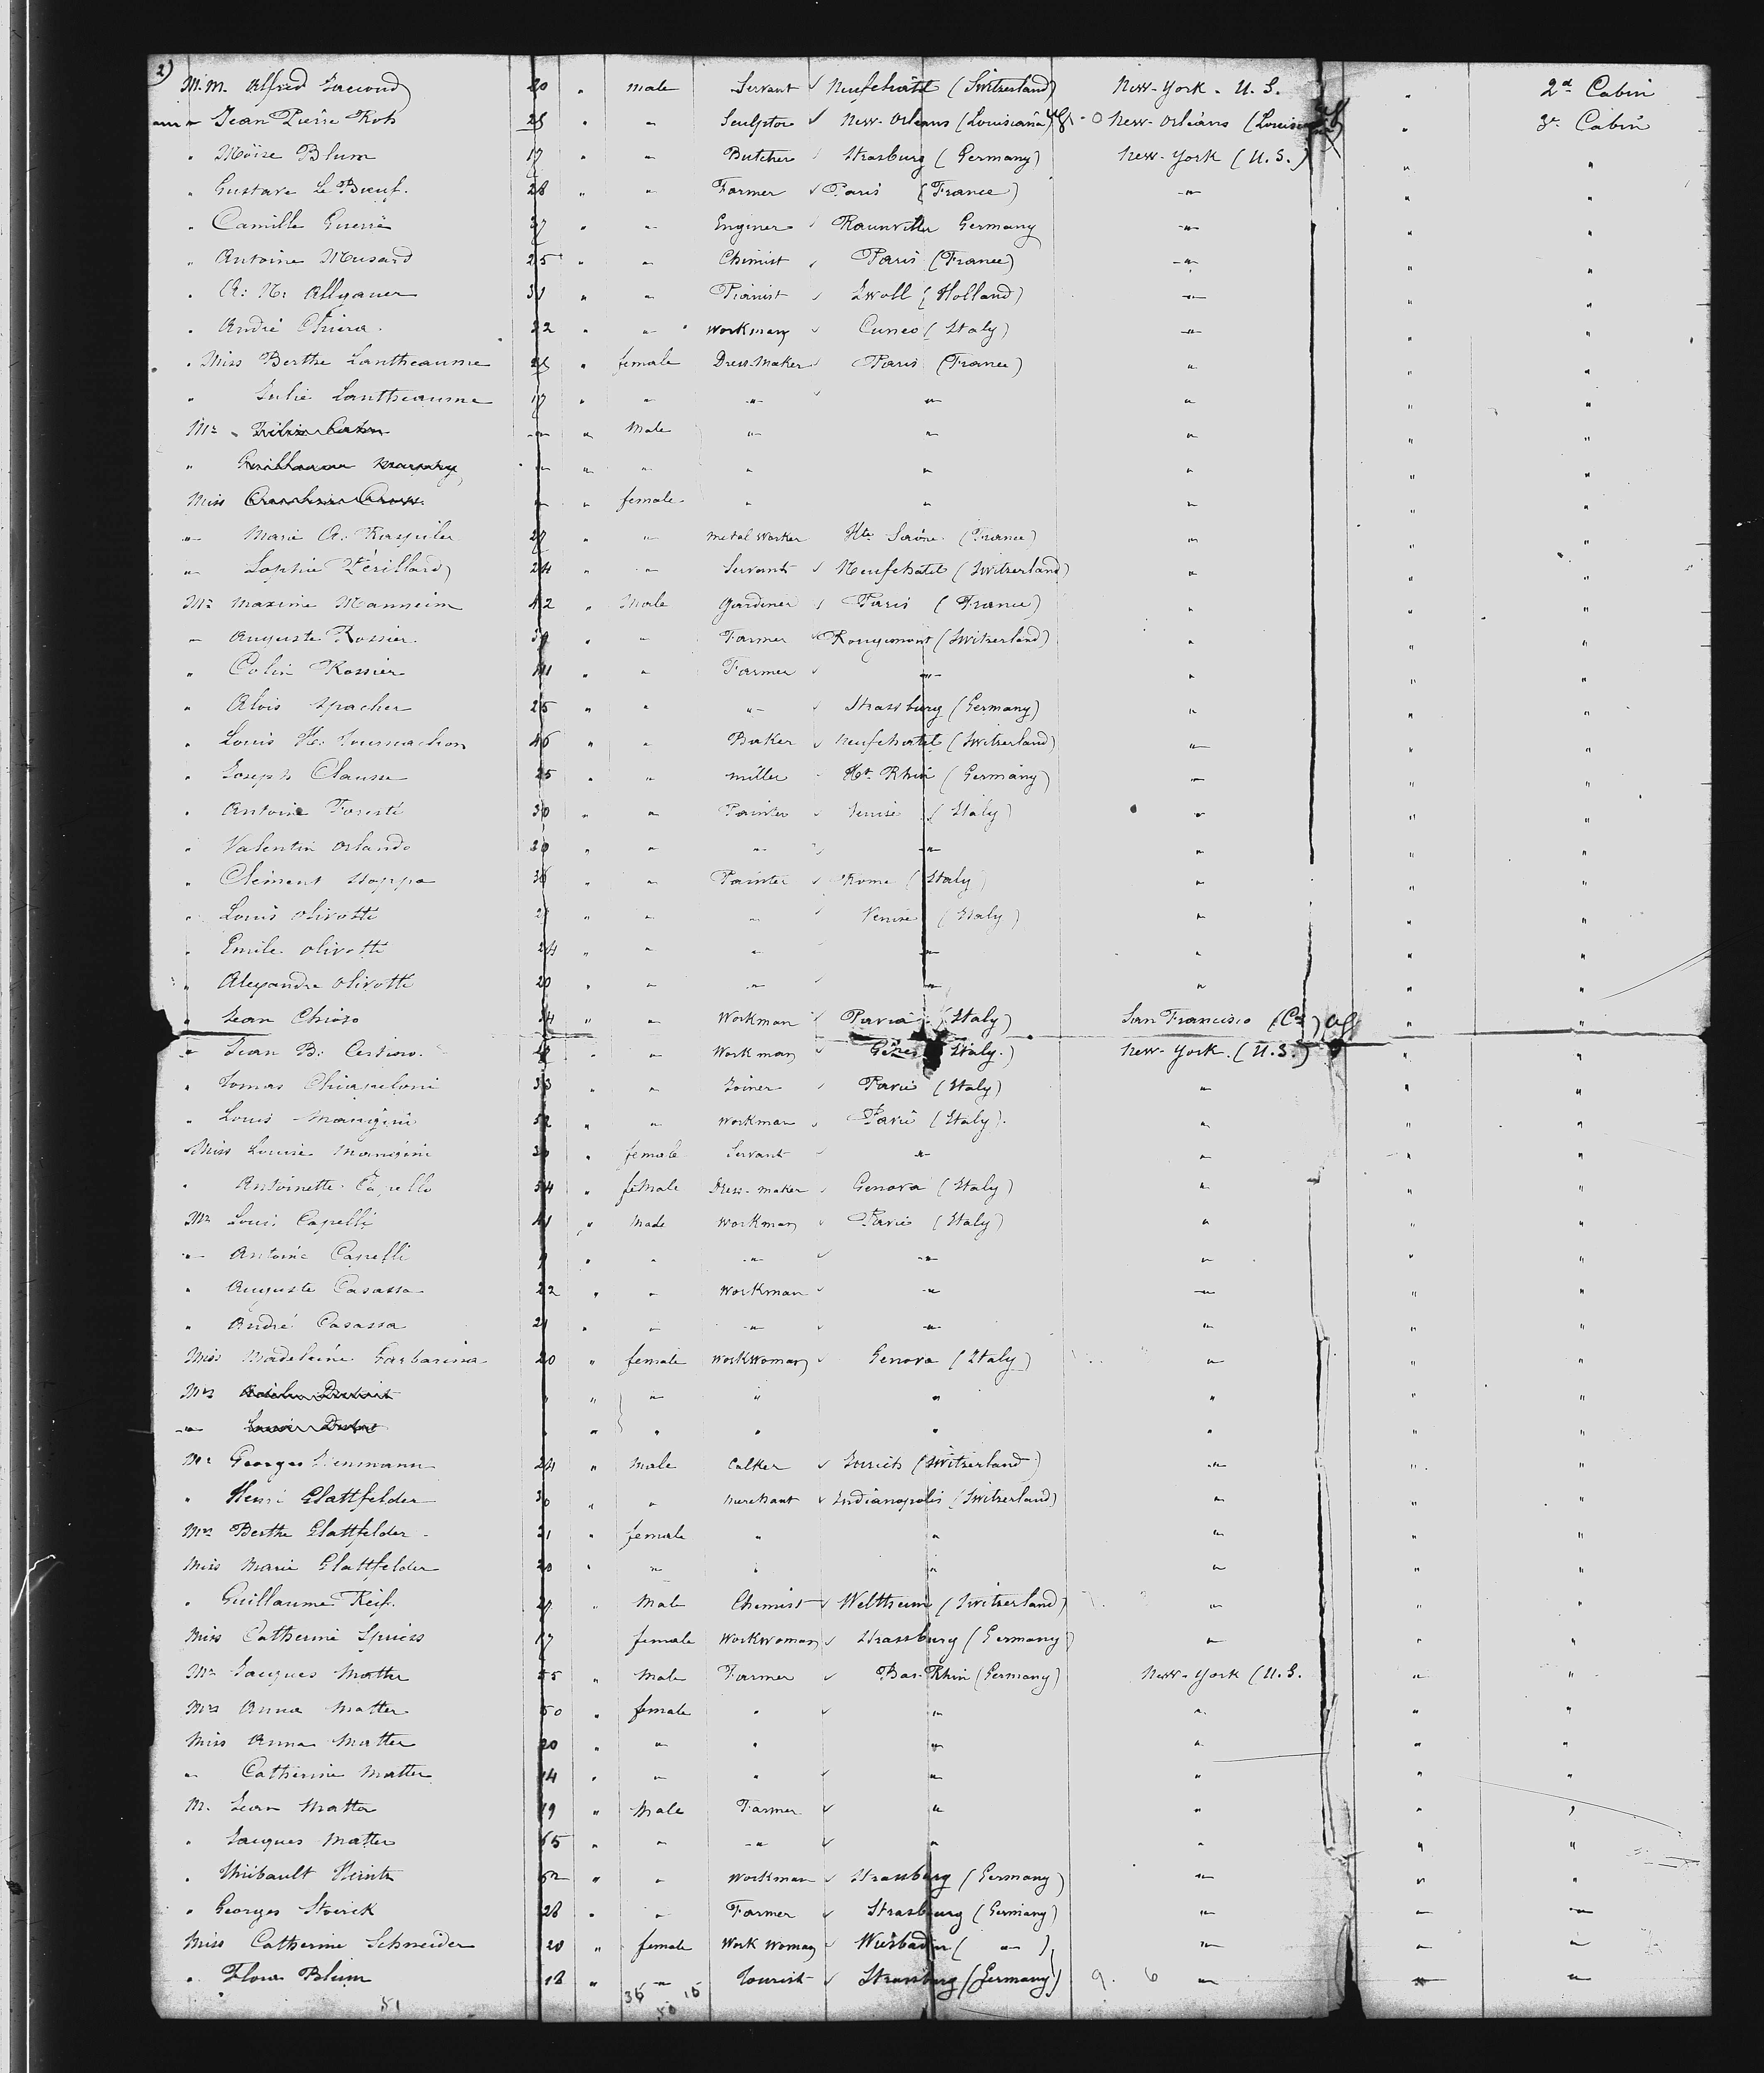 2)
M.M. Alfred 20 " male Servant Neufchâtel (Switzerland) New-York. U.S. " 2d Cabin
" Jean Pierre Roh 28 " " Sculptor New-Orleans (Louisiana) New-Orléans (Louisiana) " 3e Cabin
" Moïse Blum 17 " " Butcher Strasburg (Germany) New-York (U.S.) " "
" Gustave Le Bœuf. 28 " " Farmer Paris (France) " " "
" Camille Guerré 37 " " Enginer Germany " " "
" Antoine Musard 25 " " Chimist Paris (France) " " "
" A: N: Allgauer " " Pianist Zwoll (Holland) " " "
" André Chiera. 22 " " Workman Cuneo (Italy) " " "
" Miss Berthe Lantheaume 28 " female Dress-Maker Paris (France) " " "
" Julie Lantheaume 17 " " " " " " "
Mr " " Male " " " " "
" " " " " " " "
Miss " " female " " " " "
" Marie A: 27 " " metal Worker Hte Saône. (France) " " "
" Sophie Périllard 24 " " Servant Neufchatel (Switzerland) " " "
Mr Maxime Mannheim 42 " Male gardiner Paris (France) " " "
" Auguste Rossier. " " Farmer Rougemont (Switzerland) " " "
" Colin Rossier 41 " " Farmer " " " "
" Alois Spacher 25 " " " Strassburg (Germany) " " "
" Louis H: Tournachon 46 " " Baker Neufchatel (Switzerland) " " "
" Joseph Clausse 25 " " miller Ht. Rhin (Germany) " " "
" Antoine Foresti 30 " " Painter Venise (Italy) " " "
" Valentin Orlando 20 " " " " " " "
" Clément Stoppa 36 " " Painter Rome (Italy) " " "
" Louis Olivotti " " " Venise (Italy) " " "
" Emile Olivotti 24 " " " " " " "
" Alexandre Olivotti 20 " " " " " " "
" Jean Chioso " " Workman Pavia (Italy) San Francisco (Ca) " "
" Jean B: " " Workman Gênes (Italy.) New-York. (U.S.) " "
" Tomas 33 " " Joiner Pavie (Italy) " " "
" Louis Mangini 52 " " Workman Pavie (Italy). " " "
Miss Louise Mangini " female Servant " " " "
" Antoinette 34 " female Dress-maker Genova (Italy) " " "
Mr Louis Capelli 41 " Male Workman Pavie (Italy) " " "
" Antoine Capelli 9 " " " " " " "
" Auguste Casassa 22 " " Workman " " " "
" André Casassa 21 " " " " " " "
Miss Madeleine Garbarina 20 " female Workwoman Genova (Italy) " " "
Mrs " " " " " " " "
" " " " " " " "
Mr Georges 24 " Male Calker Zurich (Switzerland) " " "
" Henri Glattfelder 30 " " merchant Indianopolis (Switzerland) " " "
Mrs Berthe Glattfelder 21 " female " " " " "
Miss Marie Glattfelder 20 " " " " " " "
" Guillaume Reif. 27 " Male Chemist Weltheim (Switzerland) " " "
Miss Catherine Spiess 17 female Workwoman Strassburg (Germany) " " "
Mr Jacques Matter 55 " Male Farmer Bas-Rhin (Germany) New-York (U.S. " "
Mrs Anna Matter 50 " female " " " " "
Miss Anna Matter 20 " " " " " " "
" Catherine Matter 14 " " " " " " "
M. Jean Matter 19 " Male Farmer " " " "
" Jacques Matter 65 " " " " " " "
" Thiébault Heintz 52 " " Workman Strassburg (Germany) " " "
" Georges Stoerck 28 " " Farmer Strasburg (Germany) " " "
Miss Catherine Schneider 20 " female Work Woman Wiesbaden ( " ) " " "
" Flora Blum 18 " " Tourist Strassburg (Germany) 9. 6 " " "
51 35 15
50